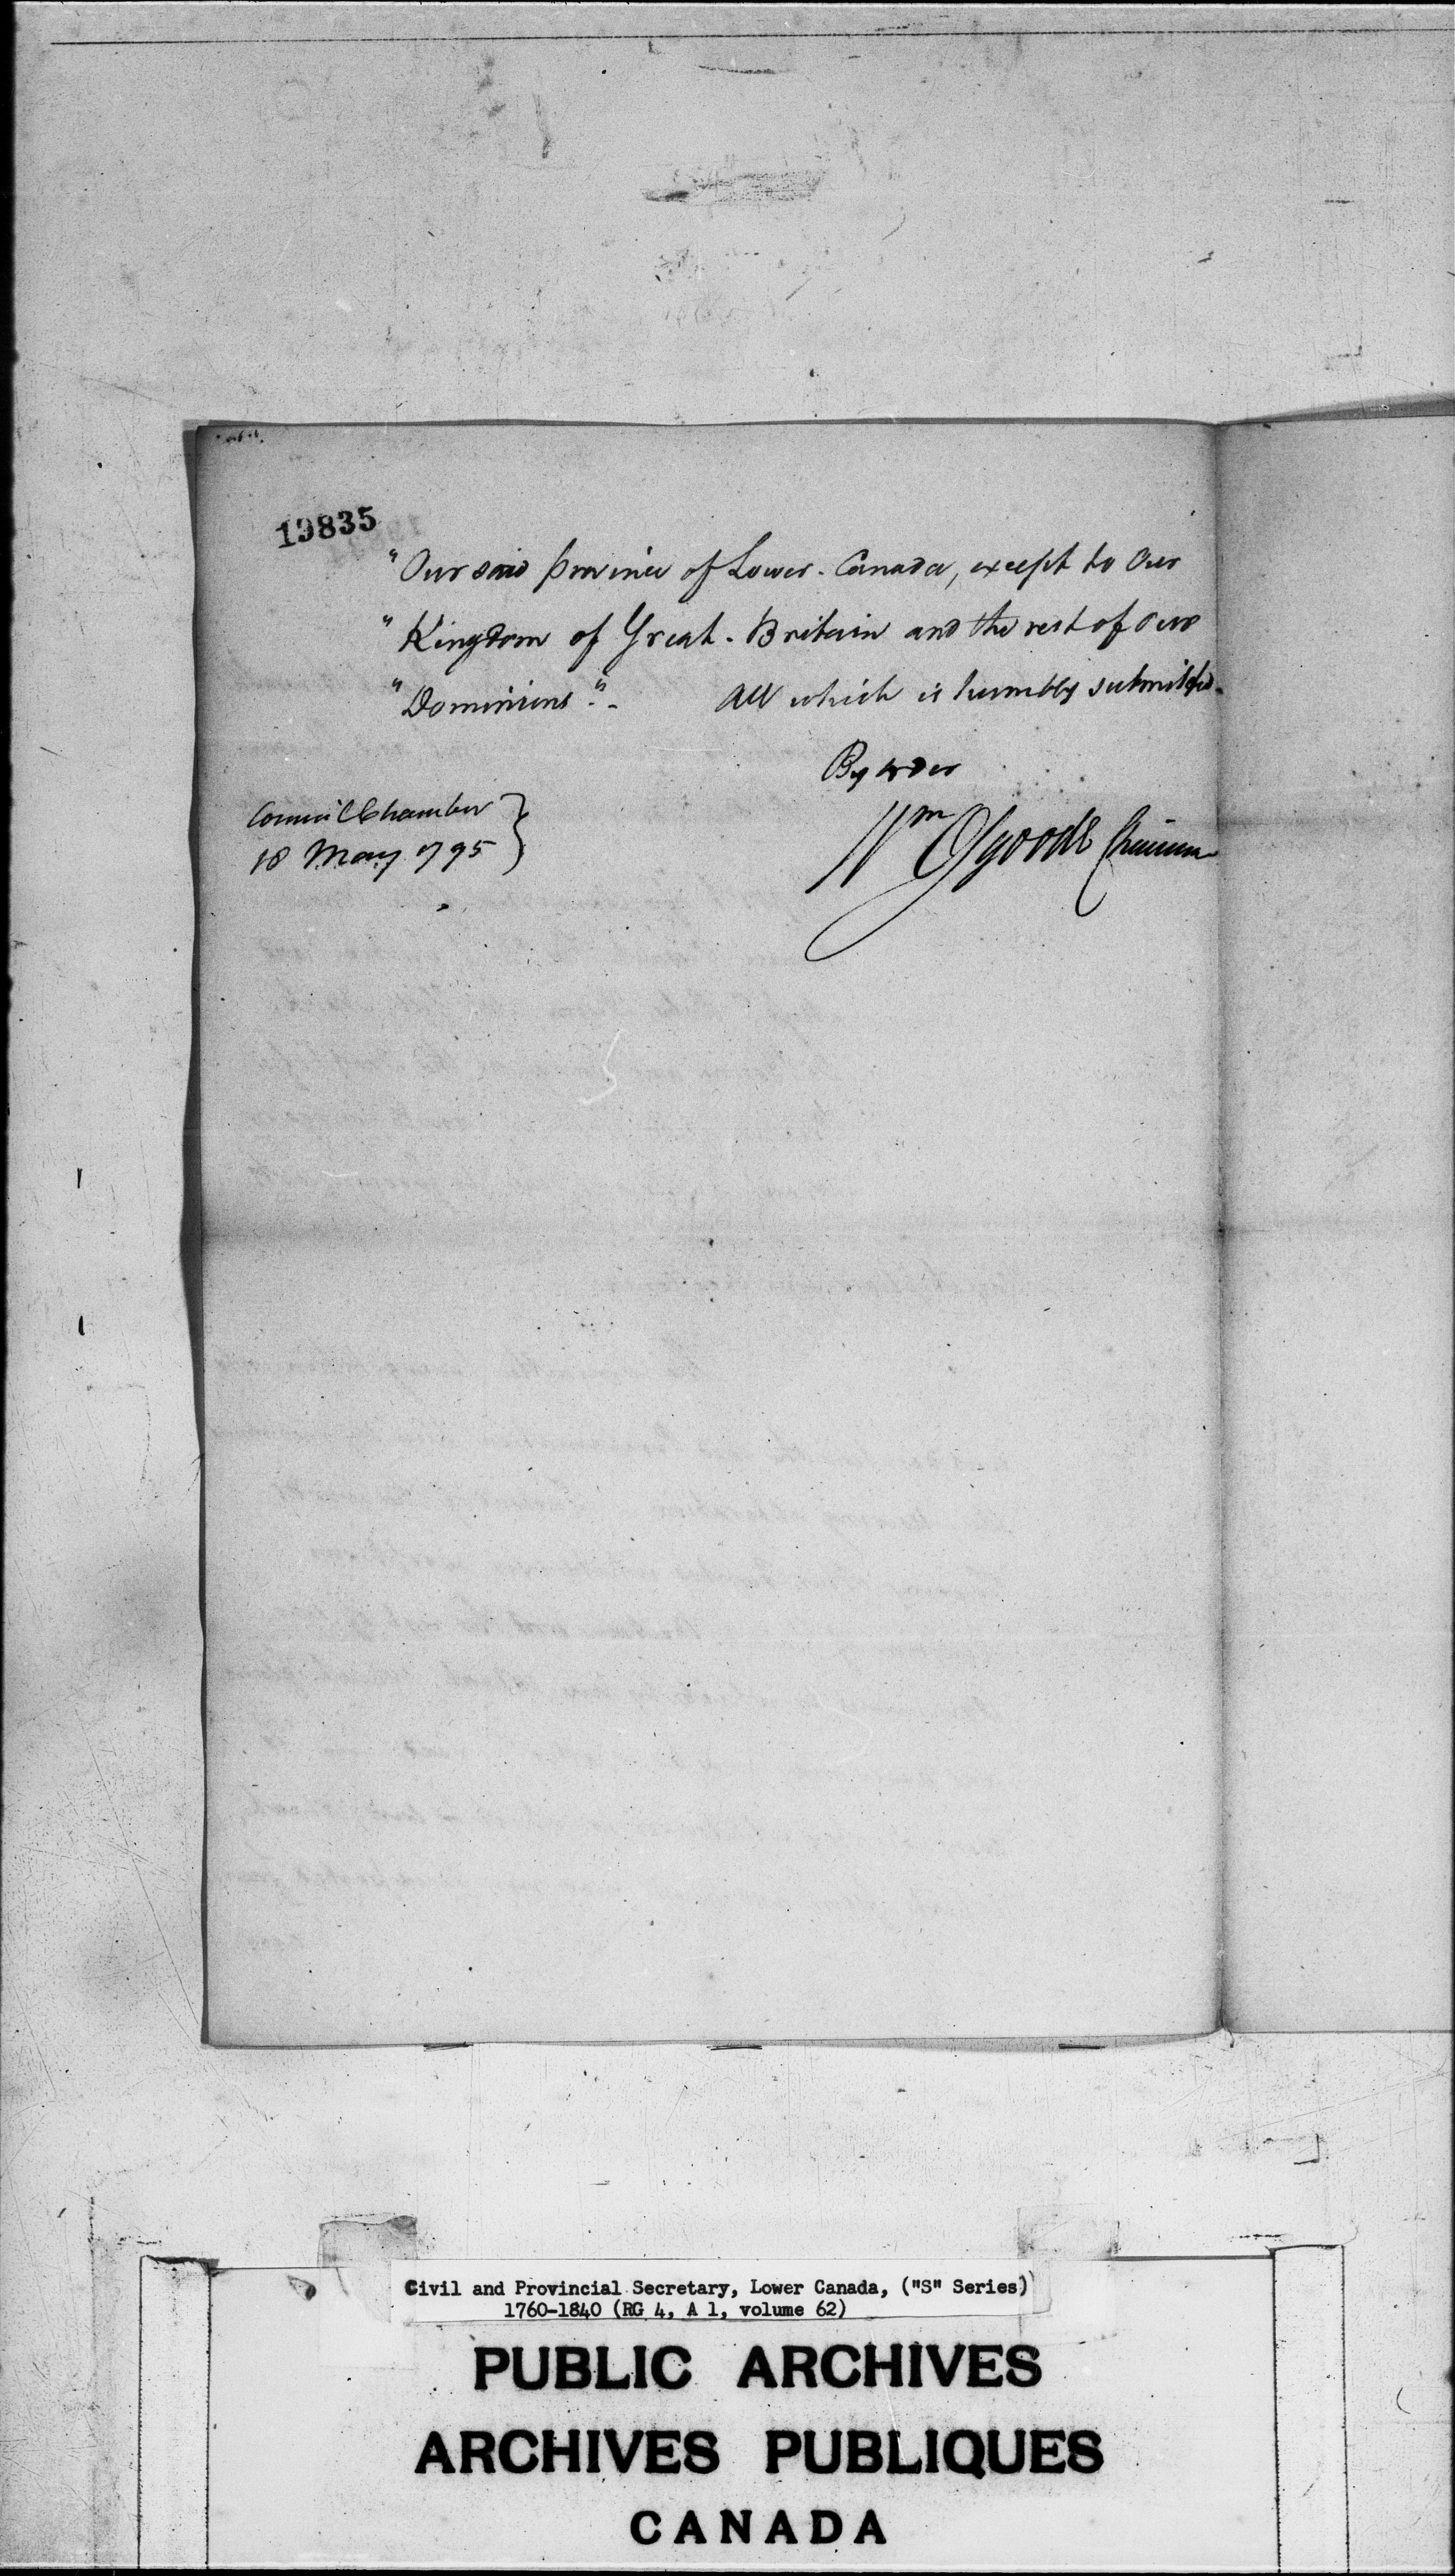 19835
"Our said Province of Lower-Canada, except to Our
"Kingdom of Great-Britain and the rest of our
"Dominions".- All which is humbly submitted.
By order
Council Chamber
18 May 1795
Wm Osgoode Chairman
Civil and Provincial Secretary, Lower Canada, ("S" Series)
1760-1840 (RG 4, A 1, volume 62)
PUBLIC ARCHIVES
ARCHIVES PUBLIQUES
CANADA